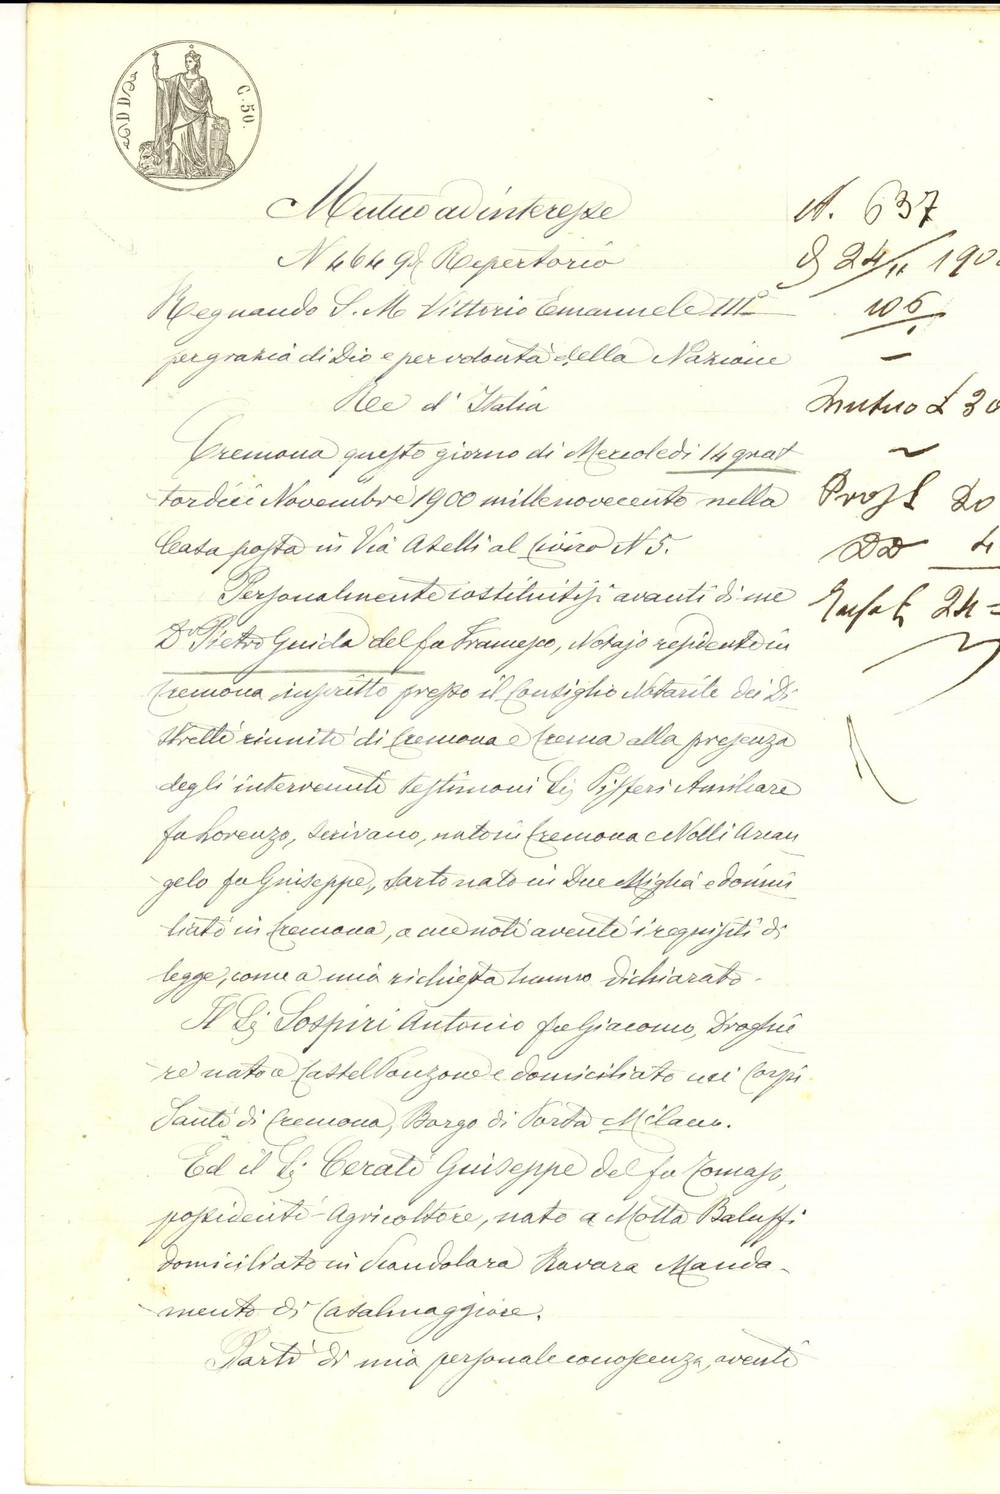 DD
C. 50.
Mutuo ad interesse
N 4649 di Repertorio
Regnando S. M. Vittorio Emanuele III°
per grazia di Dio e per volontà della Nazione
Ree d'Italia
Cremona questo giorno di Mercoledi 14 quat
tordici Novembre 1900 millenovecento nella
Casa posta in Via Aselli al Civico N 5.
Personalmente costituitisi avanti di me
Dr Pietro Guida del fu Francesco, Notajo residente in
Cremona inscritto presso il Consiglio Notarile dei Di
stretti riuniti di Cremona e Crema alla presenza
degli intervenuti testimoni Sig Pifferi Amilcare
fu Lorenzo, scrivano, nato in Cremona e Nolli Arcan
gelo fu Giuseppe, sarto nato in Due Miglia e domici
liati in Cremona, a me noti aventi i requisiti di
legge, come a mia richiesta hanno dichiarato.
Il Sig Sospiri Antonio fu Giacomo, Droghie
re nato a CastelPonzone e domiciliato nei Corpi
Santi di Cremona, Borgo di Porta Milano.
Ed il Sig Cerati Giuseppe del fu Tomaso,
possidente Agricoltore, nato a Motta Baluffi
domiciliato in Scandolara Ravara Manda-
mento di Casalmaggiore.
Parti di mia personale conoscenza, aventi
N. 637
24/11 190
106
Mutuo £ 30
Prop £ 20
DD 4
24=